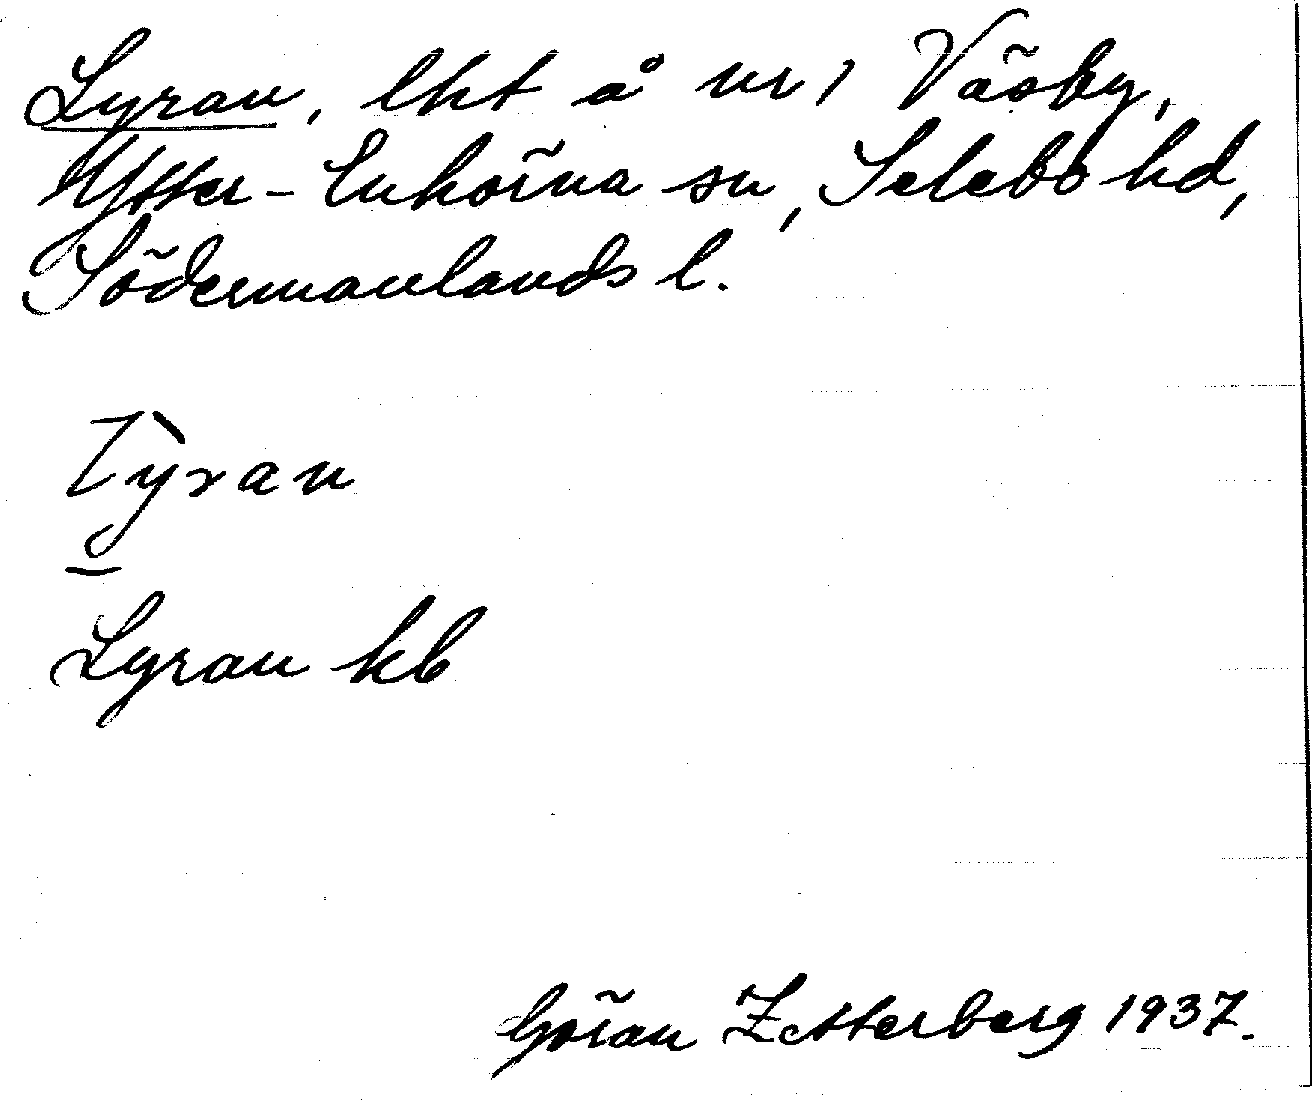 Lyran, lht å nr 1 Väsby,
Ytter-Enhörna sn, Selebo hd,
Södermanlands l.
Lỳran
Lyran kb
Göran Zetterberg 1937.